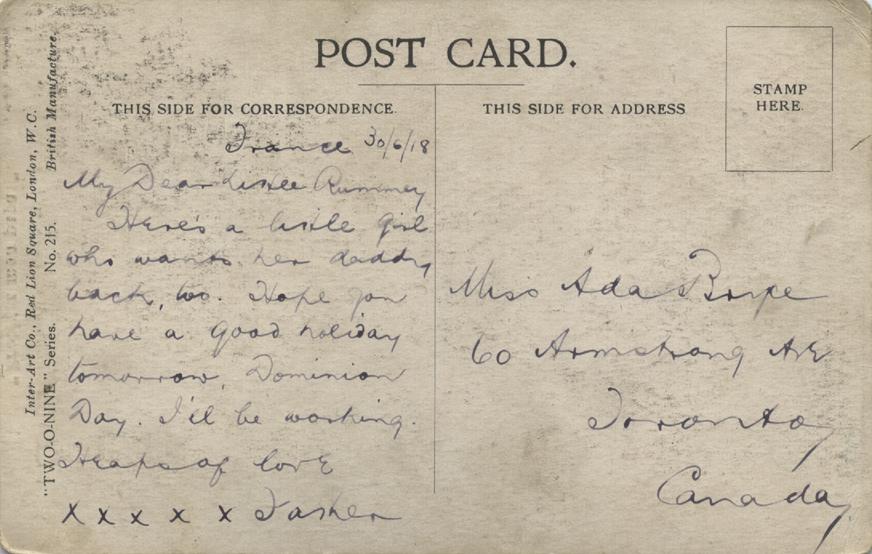 POST CARD.
THIS SIDE FOR CORRESPONDENCE.
THIS SIDE FOR ADDRESS
STAMP
HERE.
Inter-Art Co., Red Lion Square, London, W.C.
"TWO-O-NINE" Series. No. 215. British Manufacture.
France 30/6/18
My Dear
Here's a little girl
who wants her daddy
back, too. Hope you
have a good holiday
tomorrow, Dominion
Day. I'll be working.
Heaps of love
x x x x x Father
Miss Ada
60 Armstrong AvE
Toronto,
Canada,